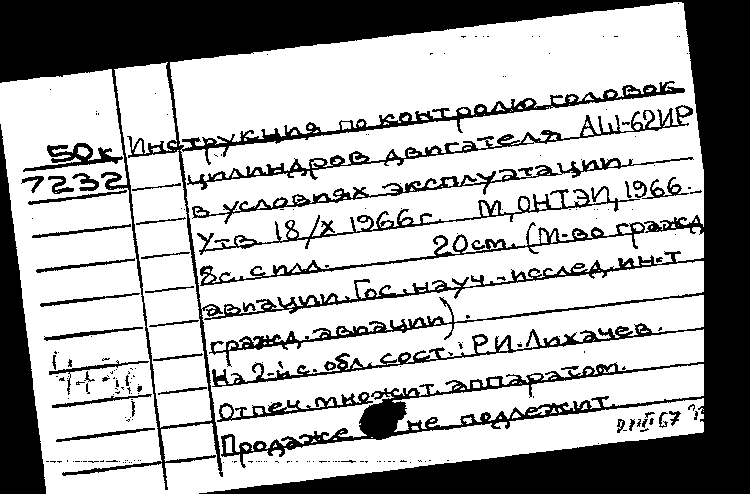 50к Инструкция по контролю головок
7232 цилиндров двигателя АШ-62ИР
в условиях эксплуатации.
Утв. 18/X 1966 г. М, ОНТЭИ, 1966.
8с. с илл. 20см. (М-во гражд
авиации. Гос. науч.-исслед. ин-т
гражд. авиации).
На 2-й с. обл. сост.: Р.И. Лихачев.
Отпеч. множит. аппаратом.
Продаже не подлежит.